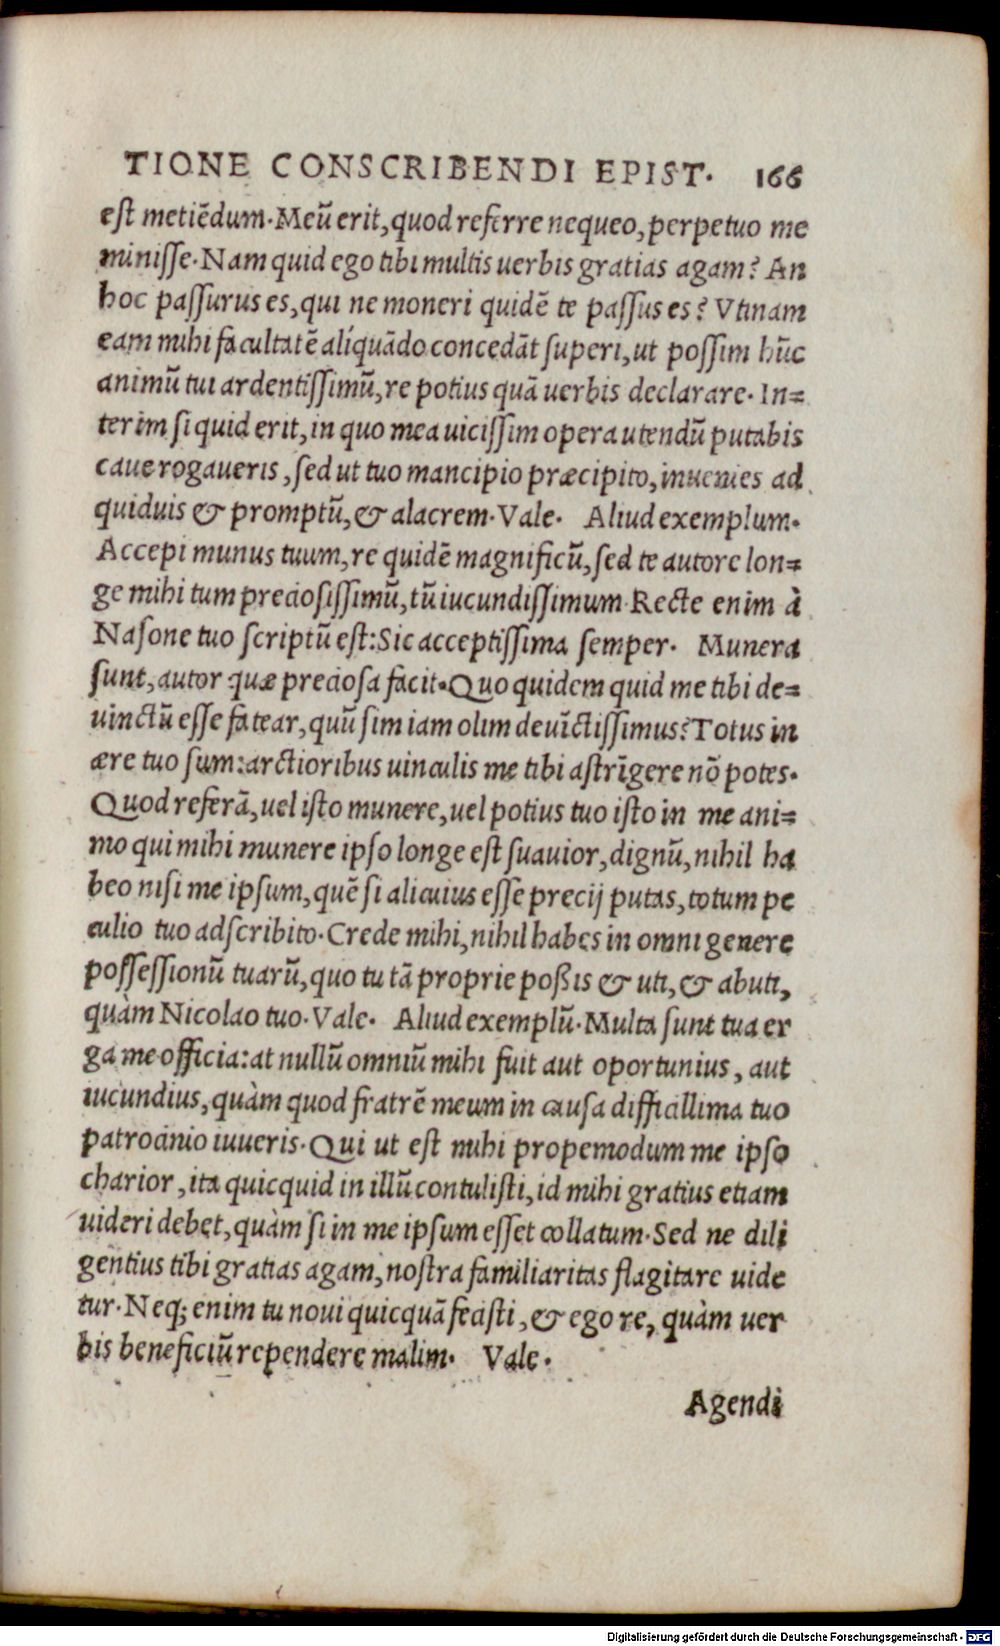 TIONE CONSCRIBENDI EPIST. 166
est metiēdum. Meū erit, quod referre nequeo, perpetuo me
minisse. Nam quid ego tibi multis uerbis gratias agam? An
hoc passurus es, qui ne moneri quidē te passus es? Vtinam
eam mihi facultatē aliquādo concedāt superi, ut possim hūc
animū tui ardentissimū, re potius quā uerbis declarare. In=
terim si quid erit, in quo mea uicissim opera utendū putabis
caue rogaueris, sed ut tuo mancipio præcipito, inuenies ad
quiduis & promptū, & alacrem. Vale. Aliud exemplum.
Accepi munus tuum, re quidē magnificū, sed te autore lon=
ge mihi tum preciosissimū, tū iucundissimum. Recte enim à
Nasone tuo scriptū est: Sic acceptissima semper. Munera
sunt, autor quæ preciosa facit. Quo quidem quid me tibi de=
uinctū esse fatear, quū sim iam olim deuīctissimus? Totus in
ære tuo sum: arctioribus uinculis me tibi astrīgere nō potes.
Quod referā, uel isto munere, uel potius tuo isto in me ani=
mo qui mihi munere ipso longe est suauior, dignū, nihil ha
beo nisi me ipsum, quē si alicuius esse precij putas, totum pe
culio tuo adscribito. Crede mihi, nihil habes in omni genere
possessionū tuarū, quo tu tā proprie poßis & uti, & abuti,
quàm Nicolao tuo. Vale. Aliud exemplū. Multa sunt tua er
ga me officia: at nullū omniū mihi fuit aut oportunius, aut
iucundius, quàm quod fratrē meum in causa difficillima tuo
patrocinio iuueris. Qui ut est mihi propemodum me ipso
charior, ita quicquid in illū contulisti, id mihi gratius etiam
uideri debet, quàm si in me ipsum esset collatum. Sed ne dili
gentius tibi gratias agam, nostra familiaritas flagitare uide
tur. Neq; enim tu noui quicquā fecisti, & ego re, quàm uer
bis beneficiū rependere malim. Vale.
Agendi
Digitalisierung gefördert durch die Deutsche Forschungsgemeinschaft - DFG